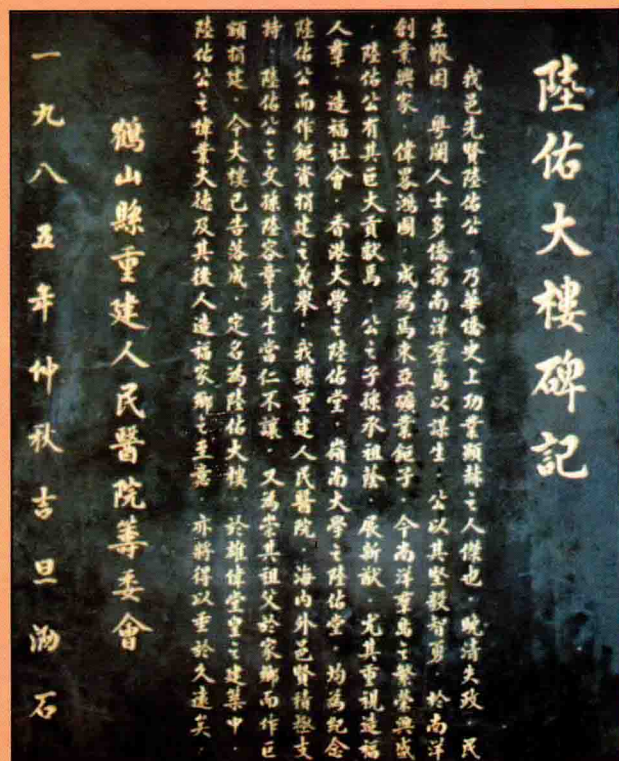 陸佑大樓碑記
我邑先賢陸佑公，乃華僑史上功業顯赫之人傑也，晚清失政，民
生艱困，粵閩人士多僑寓南洋羣島以謀生，公以其堅毅智勇，於南洋
創業興家，偉畧鴻圖，成為馬來亞礦業鉅子，今南洋羣島之繁榮興盛
，陸佑公有其巨大貢獻焉，公之子孫承祖蔭，展新猷，尤其重視造福
人羣，造福社會，香港大學之陸佑堂，嶺南大學之陸佑堂，均為紀念
陸佑公而作鉅資捐建之義舉，我縣重建人民醫院，海內外邑賢積極支
持，陸佑公之文孫陸容章先生當仁不讓，又為崇其祖父於家鄉而作巨
額捐建，今大樓已告落成，定名為陸佑大樓，於雄偉堂皇之建築中，
陸佑公之偉業大德及其後人造福家鄉之至意，亦將得以垂於久遠矣，
鶴山縣重建人民醫院籌委會
一九八五年仲秋吉旦泐石